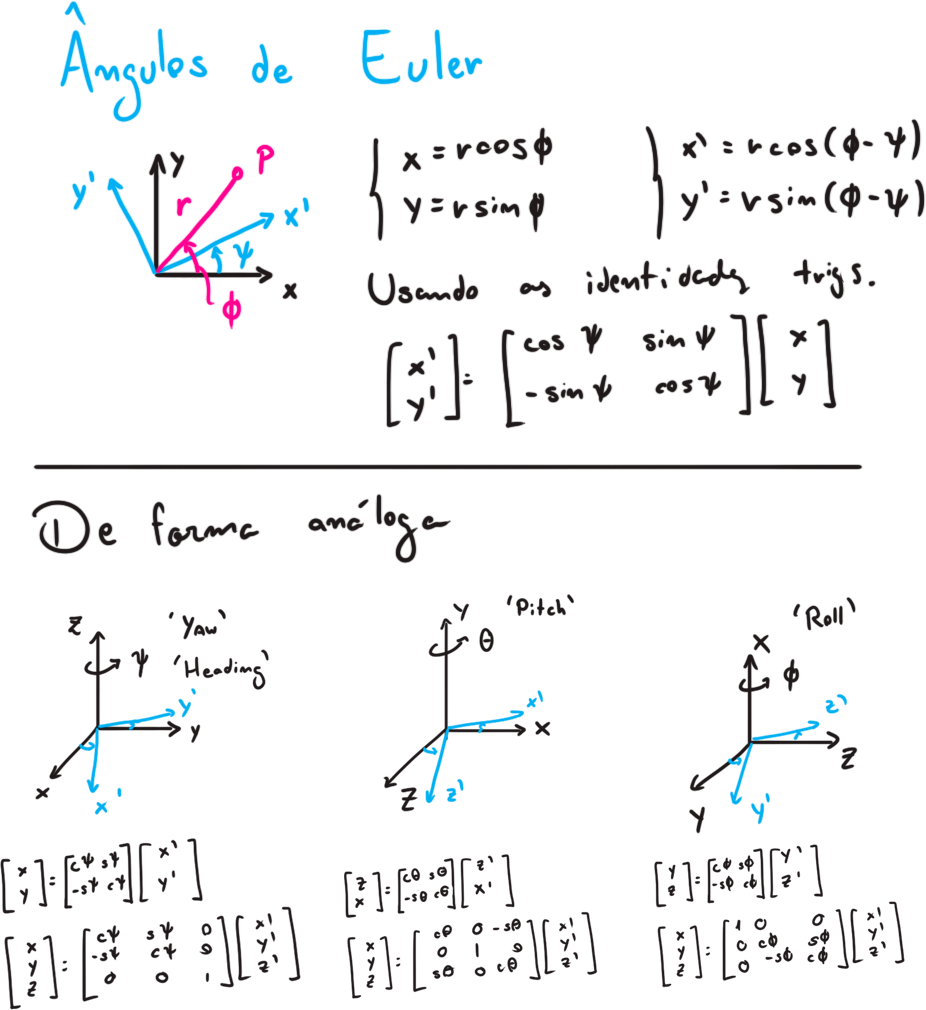 Ângulos de Euler
y
P
y'
r
x'
ψ
x
ϕ
x = r cos ϕ
y = r sin ϕ
x' = r cos(ϕ - ψ)
y' = r sin(ϕ - ψ)
Usando as identidades trigs.
[x' y'] = [cos ψ sin ψ
-sin ψ cos ψ] [x y]
De forma análoga
z 'Yaw'
ψ 'Heading'
y'
y
x
x'
y 'Pitch'
θ
x'
x
z
z'
'Roll'
x
ϕ
z'
z
y
y'
[x y] = [cψ sψ
-sψ cψ] [x' y']
[x y z] = [cψ sψ 0
-sψ cψ 0
0 0 1] [x' y' z']
[z x] = [cθ sθ
-sθ cθ] [z' x']
[x y z] = [cθ 0 -sθ
0 1 0
sθ 0 cθ] [x' y' z']
[y z] = [cϕ sϕ
-sϕ cϕ] [y' z']
[x y z] = [1 0 0
0 cϕ sϕ
0 -sϕ cϕ] [x' y' z']